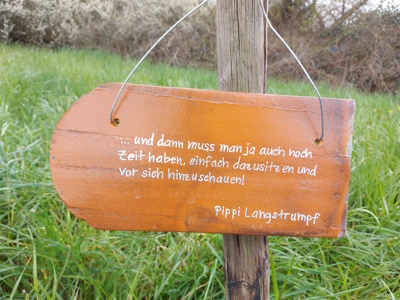 ... und dann muss man ja auch noch
Zeit haben, einfach dazusitzen und
vor sich hinzuschauen!
Pippi Langstrumpf